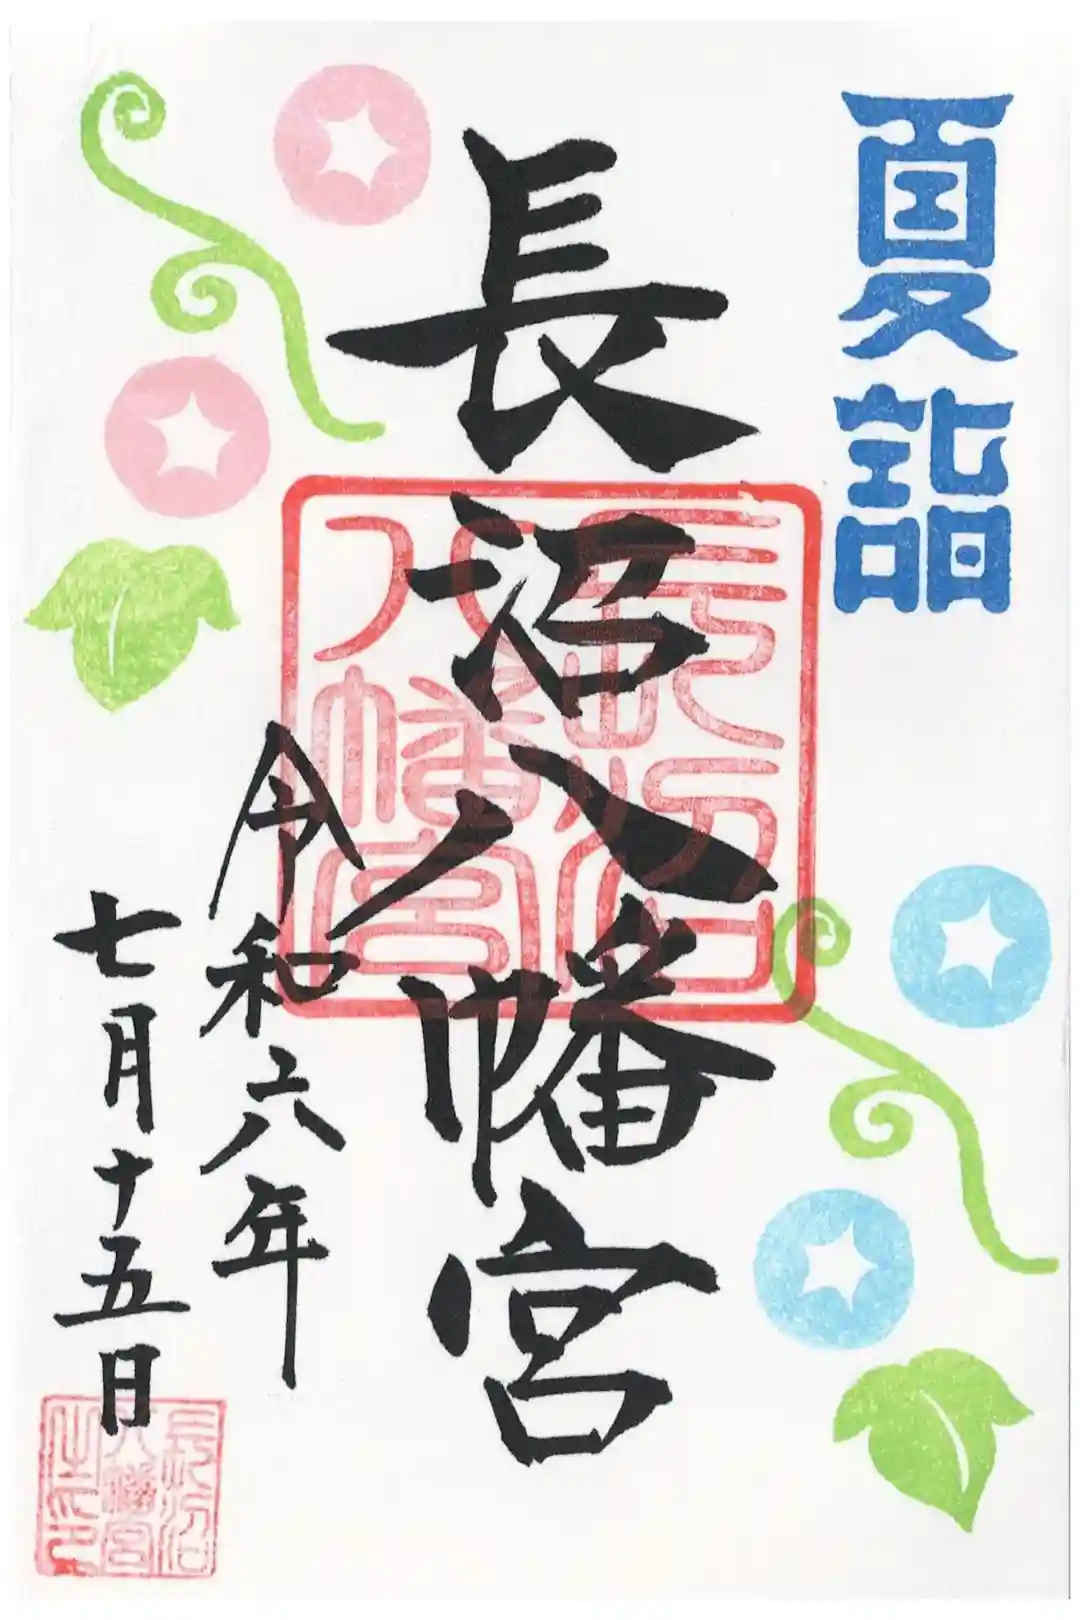 夏詣
長沼八幡宮
長沼八幡宮
令和六年
七月十五日
長沼八幡宮之印